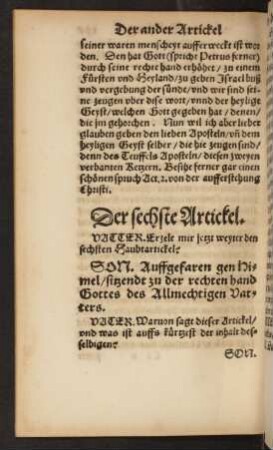 Der ander Artickel
seiner waren menscheyt aufferweckt ist wor
den. Den hat Gott (spricht Petrus ferner)
durch seine rechte hand erhöhet / zu einem
Fürsten und Heyland / zu geben Israel buß
und vergebung der sünde / und wir sind sei-
ne zeugen vber dise wort / vnnd der heylige
Geyst / welchen Gott gegeben hat / denen /
die jm gehorchen. Nun wil ich aber lieber
glauben geben den lieben Aposteln / vñ dem
heyligen Geyst selber / die hie zeugen sind /
denn des Teuffels Aposteln / diesen zweyen
verbanten Ketzern. Besihe ferner gar einen
schönen spruch Act. 2. von der aufferstehung
Christi.
Der sechste Artickel.
VATTER. Erzele mir jetzt weyter den
sechsten Haubtartickel?
SON. Auffgefaren gen Hi-
mel / sitzendt zu der rechten hand
Gottes des Allmechtigen Vat-
ters.
VATER. Warumb sagt dieser Artickel /
und was ist auffs kürtzest der inhalt des-
selbigen?
SON.